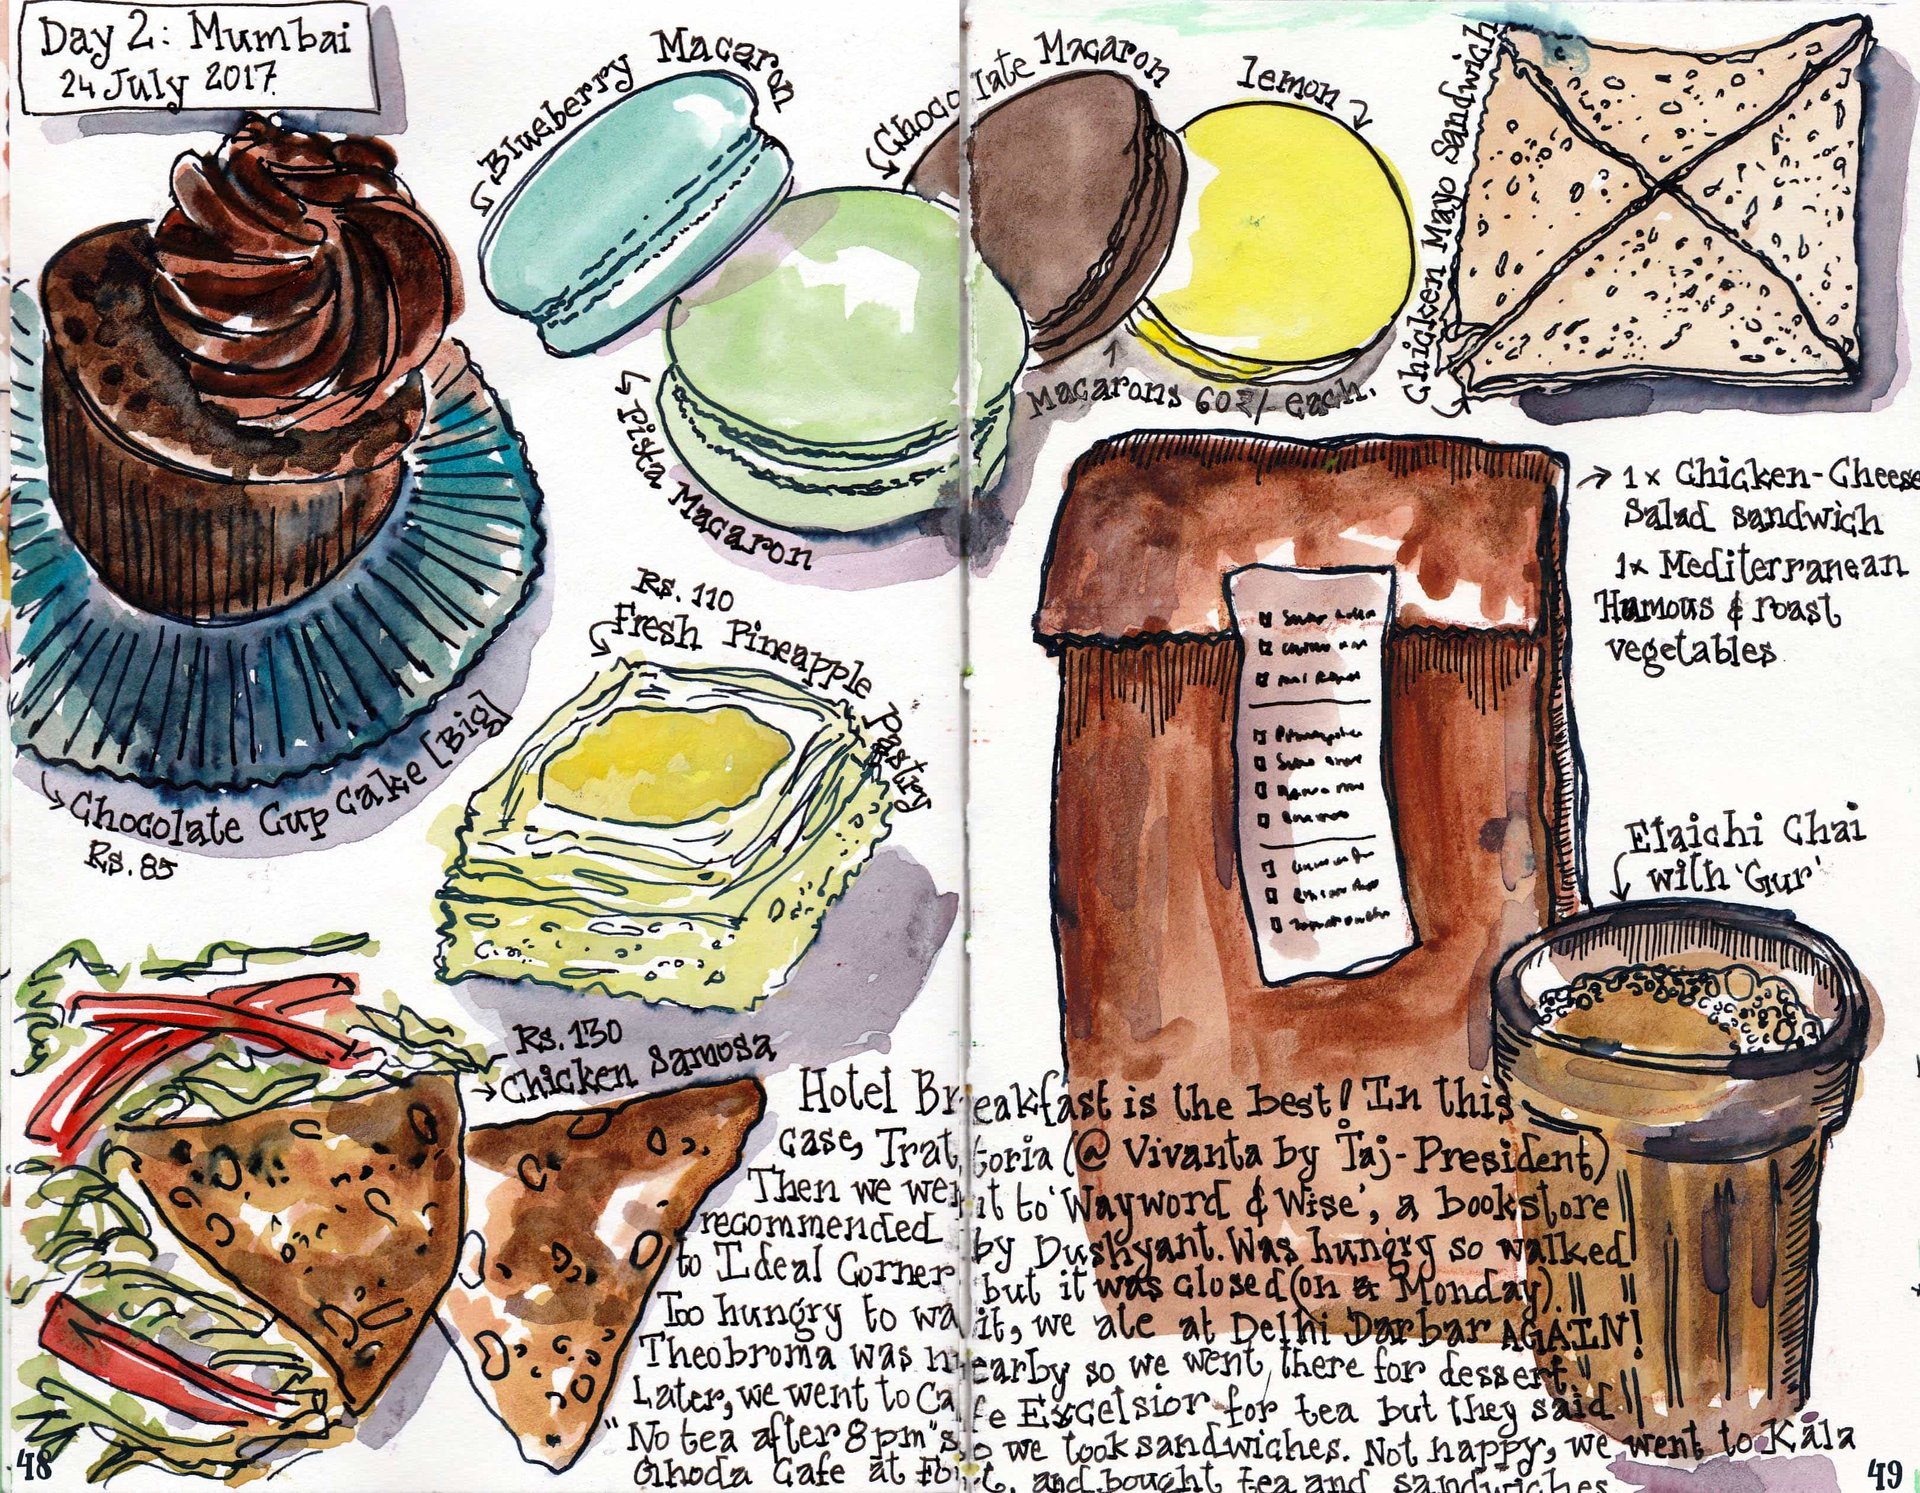 Day 2: Mumbai
24 July 2017.
Blueberry Macaron
Chocolate Macaron
lemon
Chicken Mayo Sandwich
Pista Macaron
Macarons 60₹/- each.
→ 1 x Chicken-Cheese
Salad sandwich
1x Mediterranean
Humous & roast
vegetables
Rs. 110
Fresh Pineapple Pastry
Chocolate Cup cake [Big]
Rs. 85
Elaichi Chai
with 'Gur'
Rs. 130
Chicken Samosa
Hotel Breakfast is the best! In this
case, Trattoria (@ Vivanta by Taj-President)
Then we went to 'Wayword & Wise', a bookstore
recommended by Dushyant. Was hungry so walked
to Ideal Corner but it was closed (on a Monday).
Too hungry to wait, we ate at Delhi Darbar AGAIN!
Theobroma was nearby so we went there for dessert.
Later, we went to Cafe Excelsior for tea but they said
"No tea after 8pm" so we took sandwiches. Not happy, we went to Kala
Ghoda Cafe at Fort, and bought tea and sandwiches
48
49